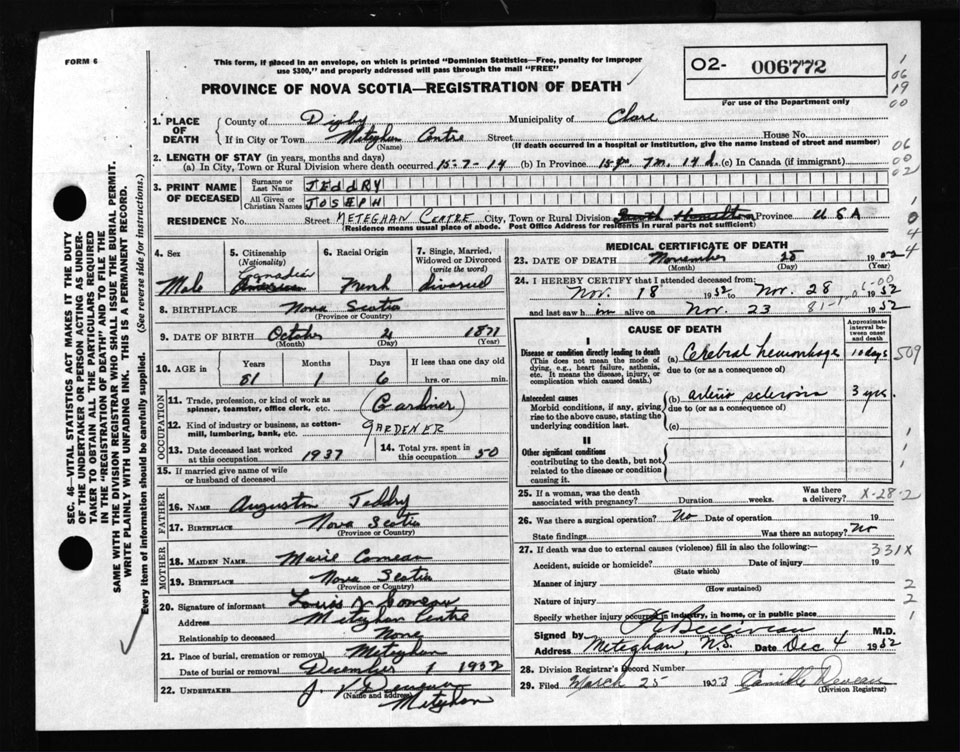 FORM 6
This form, if placed in an envelope, on which is printed "Dominion Statistics—Free, penalty for improper
use $300," and properly addressed will pass through the mail "FREE"
O2- 006772
For use of the Department only
PROVINCE OF NOVA SCOTIA—REGISTRATION OF DEATH
1. PLACE OF DEATH
County of Digby Municipality of Clare
If in City or Town Meteghan Centre Street House No.
(Name) (If death occurred in a hospital or institution, give the name instead of street and number)
2. LENGTH OF STAY (in years, months and days)
(a) In City, Town or Rural Division where death occurred 15-7-14 (b) In Province 15 yr. 7 m. 14 d. (c) In Canada (if immigrant)
3. PRINT NAME OF DECEASED
Surname or Last Name JEDDRY
All Given or Christian Names JOSEPH
RESIDENCE No. Street METEGHAN CENTRE City, Town or Rural Division South Hamilton Province USA
(Residence means usual place of abode. Post Office Address for residents in rural parts not sufficient)
4. Sex Male
5. Citizenship (Nationality) Canadian American
6. Racial Origin French
7. Single, Married, Widowed or Divorced (write the word) divorced
8. BIRTHPLACE Nova Scotia
(Province or Country)
9. DATE OF BIRTH October 2 1871
(Month) (Day) (Year)
10. AGE in Years 81 Months 1 Days 6 If less than one day old hrs. or min.
OCCUPATION
11. Trade, profession, or kind of work as spinner, teamster, office clerk, etc. (Gardiner)
12. Kind of industry or business, as cotton-mill, lumbering, bank, etc. GARDENER
13. Date deceased last worked at this occupation 1937
14. Total yrs. spent in this occupation 50
15. If married give name of wife or husband of deceased
FATHER
16. NAME Jeddry
17. BIRTHPLACE Nova Scotia
(Province or Country)
MOTHER
18. MAIDEN NAME Marie Comeau
19. BIRTHPLACE Nova Scotia
(Province or Country)
20. Signature of informant Louis J Comeau
Address Meteghan Centre
Relationship to deceased None
21. Place of burial, cremation or removal Meteghan
Date of burial or removal December 1 1952
22. UNDERTAKER J. V Deveau
(Name and address) Meteghan
MEDICAL CERTIFICATE OF DEATH
23. DATE OF DEATH November 28 1952
(Month) (Day) (Year)
24. I HEREBY CERTIFY that I attended deceased from
Nov. 18 1952 to Nov. 28 1952
and last saw him alive on Nov. 23 1952
CAUSE OF DEATH
Approximate interval between onset and death
I
Disease or condition directly leading to death
(This does not mean the mode of dying, e.g., heart failure, asthenia, etc. It means the disease, injury, or complication which caused death.)
(a) Cerebral hemorrhage 10 days
due to (or as a consequence of)
Antecedent causes
Morbid conditions, if any, giving rise to the above cause, stating the underlying condition last.
(b) arterio sclerosis 3 yrs.
due to (or as a consequence of)
(c)
II
Other significant conditions
contributing to the death, but not related to the disease or condition causing it.
25. If a woman, was the death associated with pregnancy? Duration weeks. Was there a delivery?
X-28-2
26. Was there a surgical operation? No Date of operation 19
State findings Was there an autopsy? No
27. If death was due to external causes (violence) fill in also the following:—
331X
Accident, suicide or homicide? Date of injury 19
(State which)
Manner of injury
(How sustained)
Nature of injury
Specify whether injury occurred in industry, in home, or in public place
Signed by Belliveau M.D.
Address Meteghan, N.S. Date Dec 4 1952
28. Division Registrar's Record Number
29. Filed March 25 1953 Camille Deveau
(Division Registrar)
SEC. 46—VITAL STATISTICS ACT MAKES IT THE DUTY
OF THE UNDERTAKER OR PERSON ACTING AS UNDER-
TAKER TO OBTAIN ALL THE PARTICULARS REQUIRED
IN THE "REGISTRATION OF DEATH" AND TO FILE THE
SAME WITH THE DIVISION REGISTRAR WHO SHALL ISSUE THE BURIAL PERMIT.
WRITE PLAINLY WITH UNFADING INK. THIS IS A PERMANENT RECORD.
Every item of information should be carefully supplied. (See reverse side for instructions.)
1
06
19
00
06
00
02
0
4
4
509
1
1
1
2
2
1